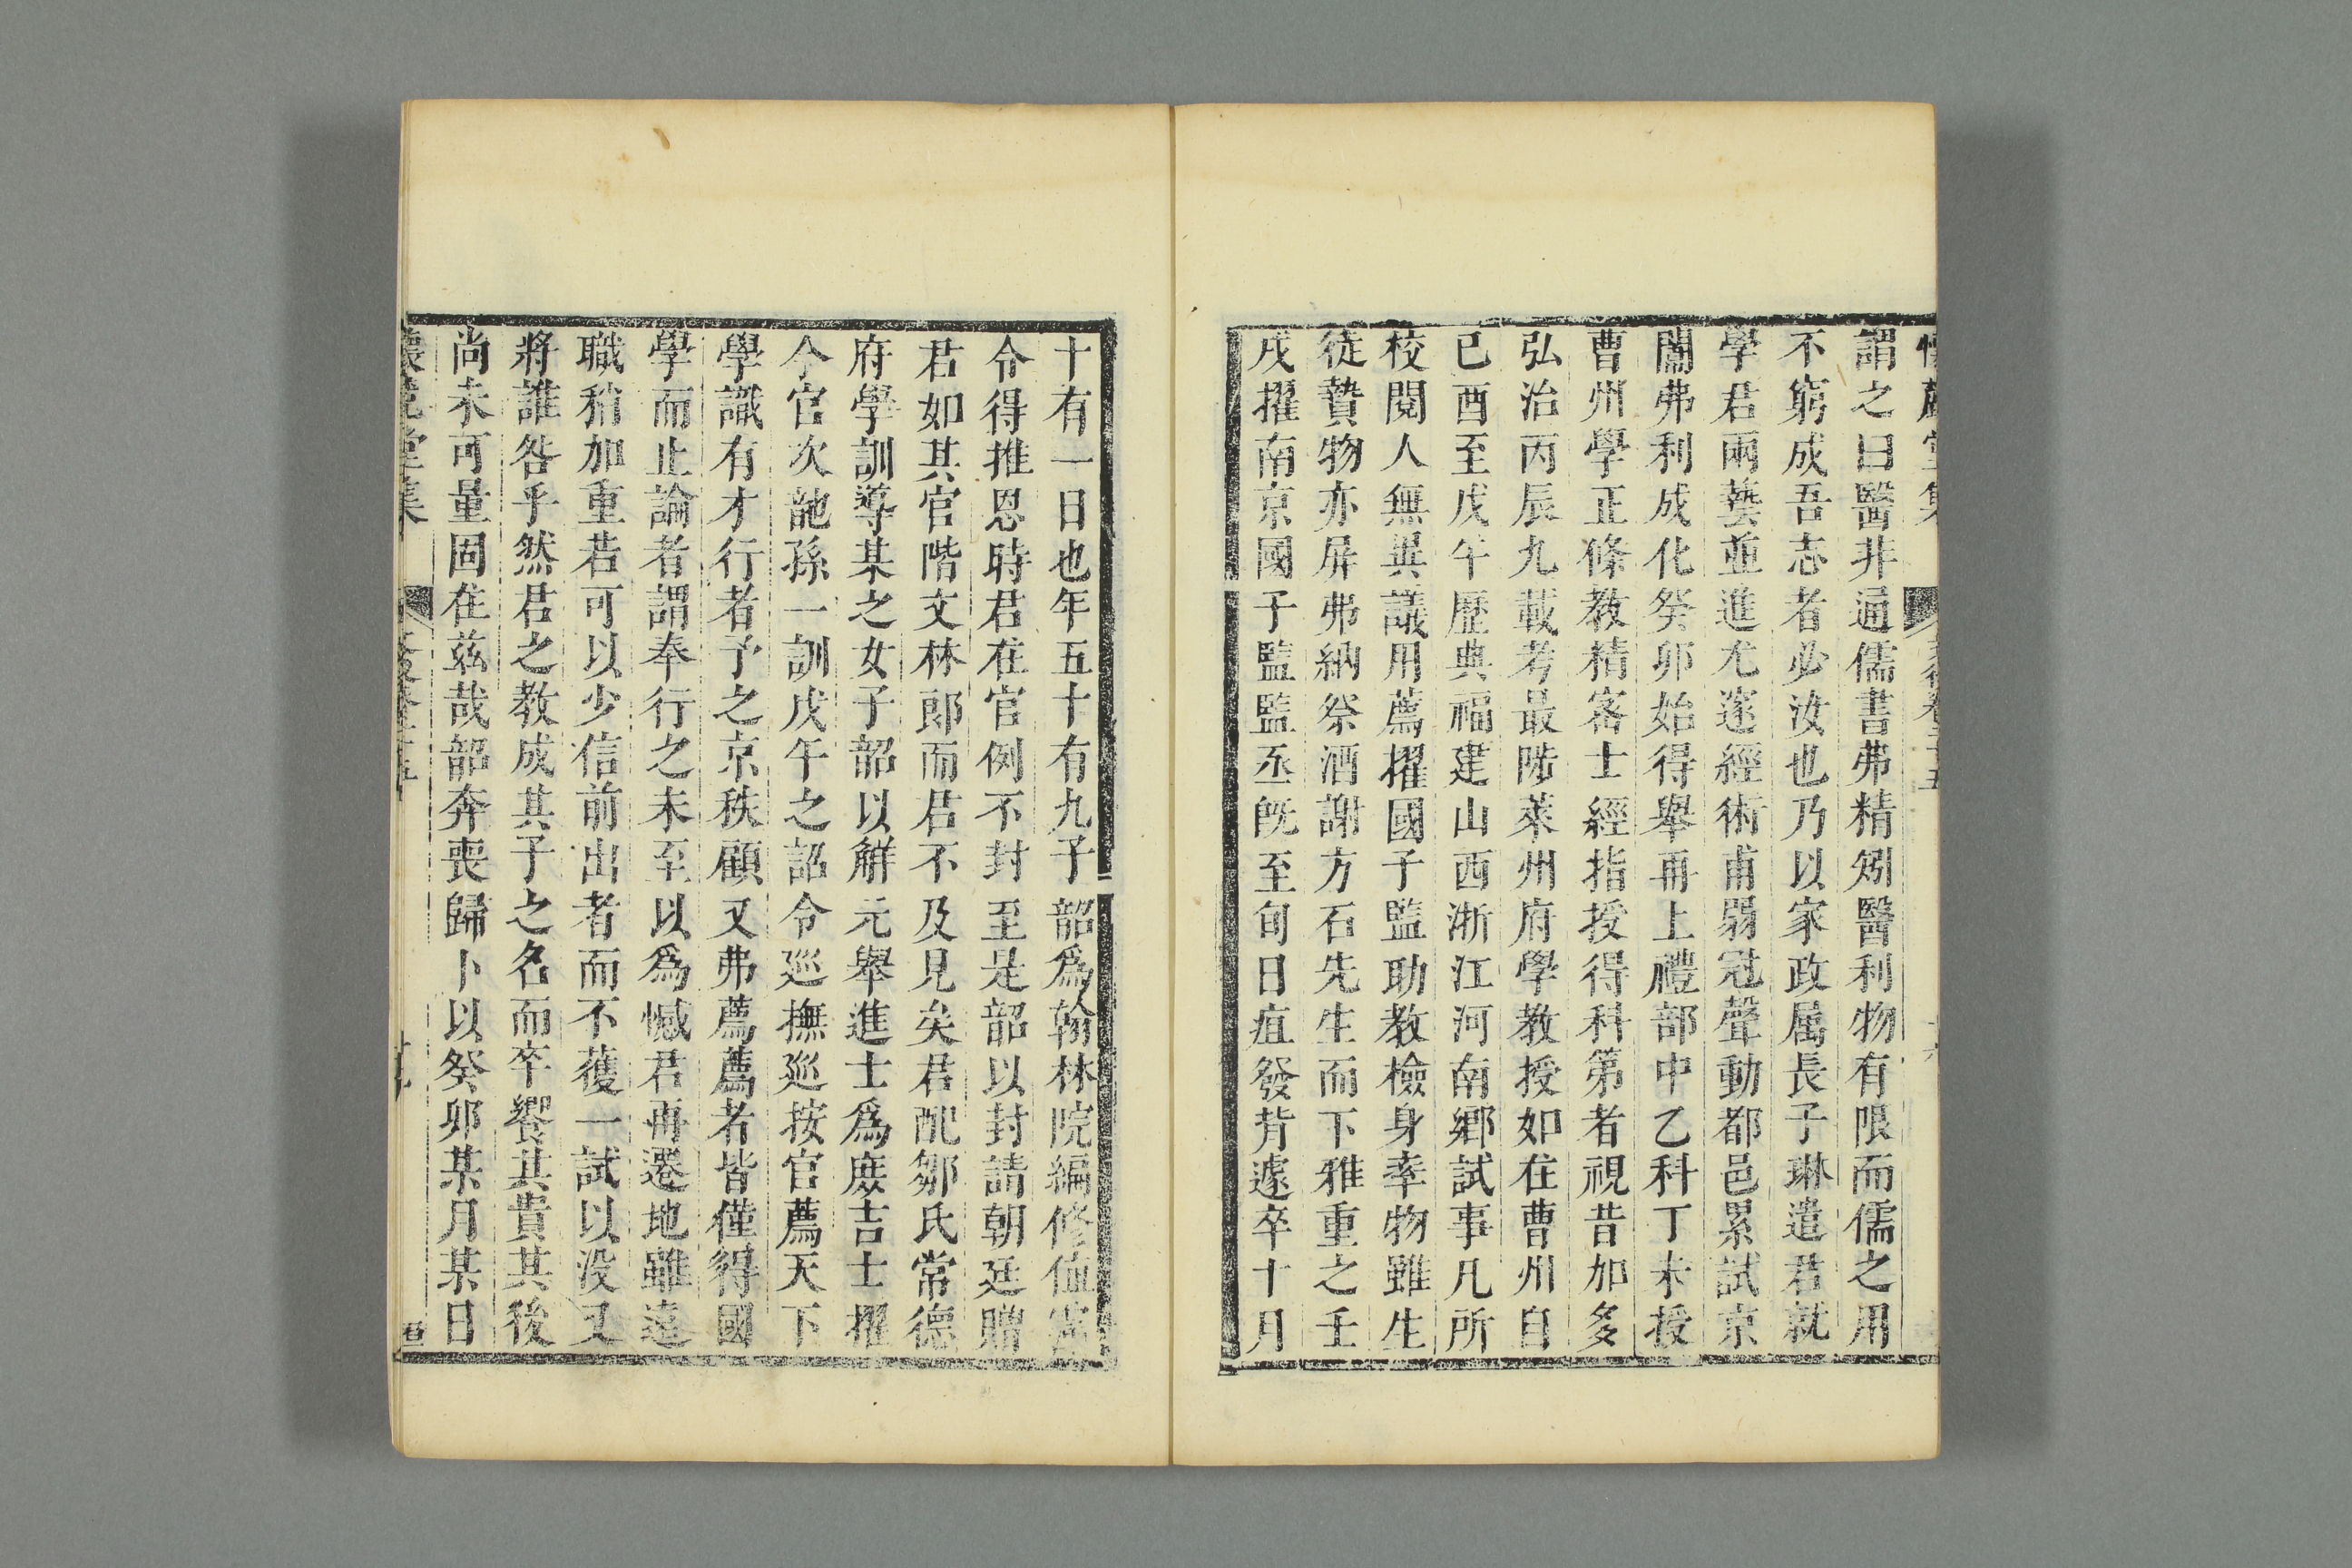 謂之曰醫非通儒書弗精矧醫利物有限而儒之用
不窮成吾志者必汝也乃以家政属長子琳遣君就
學君兩藝並進尤邃經術甫弱冠聲動都邑累試京
闈弗利成化癸卯始得舉再上禮部中乙科丁未授
曹州學正條教精密士經指授得科第者視昔加多
弘治丙辰九載考最陟萊州府學教授如在曹州自
己酉至戊午歷典福建山西浙江河南鄉試事凡所
校閱人無異議用薦擢國子監助教檢身率物雖生
徒贄物亦屏弗納祭酒謝方石先生而下雅重之壬
戌擢南京國子監監丞旣至旬日疽發背遽卒十月
十有一日也年五十有九子韶爲翰林院編修值
令得推恩時君在官例不封至是韶以封請朝廷贈
君如其官階文林郎而君不及見矣君配鄒氏常德
府學訓導某之女子韶以觧元舉進士爲庶吉士擢
今官次䪥孫一訓戊午之詔令廵撫廵按官薦天下
學識有才行者予之京秩顧又弗薦薦者皆僅得國
學而止論者謂奉行之未至以爲憾君再遷地雖遠
職稍加重若可以少信前出者而不獲一試以没又
將誰咎乎然君之教成其子之名而卒饗其貴其後
尚未可量固在兹哉韶奔喪歸卜以癸卯某月某日
懷麓堂集